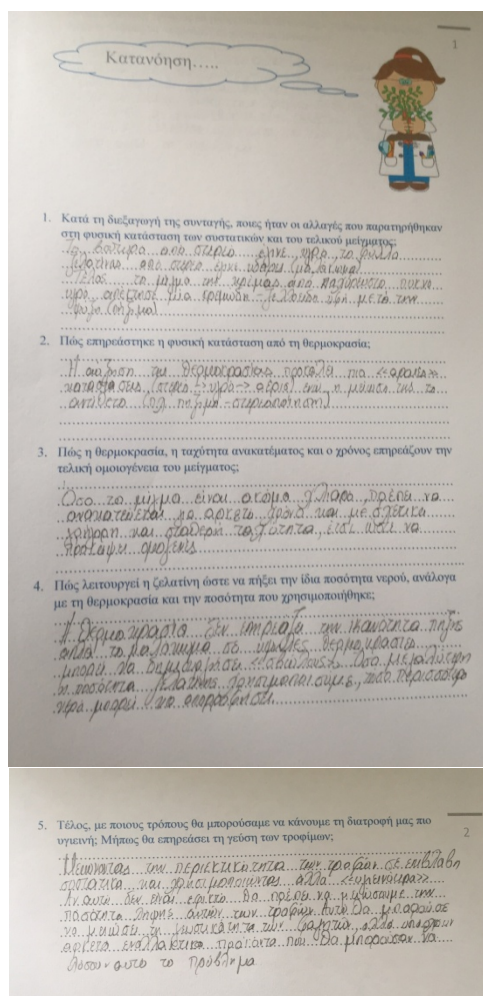 1
Κατανόηση.....
1. Κατά τη διεξαγωγή της συνταγής, ποιες ήταν οι αλλαγές που παρατηρήθηκαν
στη φυσική κατάσταση των συστατικών και του τελικού μείγματος;
Το βούτυρο από στερεό έγινε υγρό, το φύλλο
ζελατίνας από στερεό έγινε
Τέλος το μίγμα της κρέμας από παχύρρευστο πυκνό
υγρό, απέκτησε μια κρεμώδη - ζελεδώδη υφή μετά την
ψύξη (πήγμα)
2. Πώς επηρεάστηκε η φυσική κατάσταση από τη θερμοκρασία;
Η αύξηση της θερμοκρασίας προκαλεί πιο
καταστάσεις (στερεό -> υγρό -> αέριο) ενώ η μείωση της το
αντίθετο (πχ πήξιμο - στερεοποίηση)
3. Πώς η θερμοκρασία, η ταχύτητα ανακατέματος και ο χρόνος επηρεάζουν την
τελική ομοιογένεια του μείγματος;
Όσο το μίγμα είναι ακόμα χλιαρό, πρέπει να
ανακατεύεται για αρκετό χρόνο και με σχετικά
γρήγορη και σταθερή ταχύτητα, έτσι ώστε να
προκύψει ομογενές
4. Πώς λειτουργεί η ζελατίνη ώστε να πήξει την ίδια ποσότητα νερού, ανάλογα
με τη θερμοκρασία και την ποσότητα που χρησιμοποιήθηκε;
Η θερμοκρασία δεν επηρεάζει την ικανότητα πήξης
αλλά το μαλάκωμα σε υψηλές θερμοκρασίες
μπορεί να δημιουργήσει Όσο μεγαλύτερη
η ποσότητα ζελατίνης χρησιμοποιούμε, τόσο περισσότερο
νερό μπορεί να απορροφήσει.
2
5. Τέλος, με ποιους τρόπους θα μπορούσαμε να κάνουμε τη διατροφή μας πιο
υγιεινή; Μήπως θα επηρεάσει τη γεύση των τροφίμων;
Μειώνοντας την περιεκτικότητα των τροφών σε επιβλαβή
συστατικά και χρησιμοποιώντας άλλα <<υγιεινότερα>>
Αν αυτό δεν είναι εφικτό θα πρέπει να μειώσουμε την
ποσότητα λήψης αυτών των τροφών. Αυτό θα μπορούσε
να μειώσει τη γευστικότητα των φαγητών, αλλά υπάρχουν
αρκετά εναλλακτικά προϊόντα που θα μπορούσαν να
λύσουν αυτό το πρόβλημα